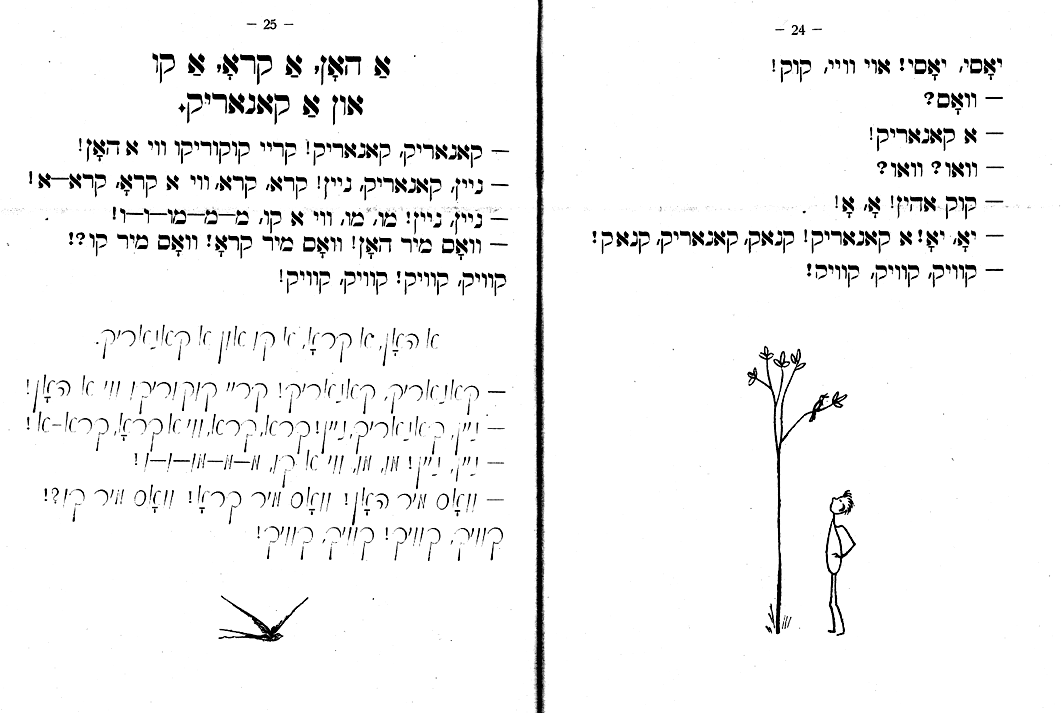 — 24 —
יאָסי, יאָסי! אוי וויי, קוק!
— וואָס?
— א קאנאריק!
— וואו? וואו?
— קוק אהין! אָ, אָ!
— יאָ, יאָ! א קאנאריק! קנאק, קאנאריק, קנאק!
— קוויק, קוויק, קוויק!
— 25 —
אַ האָן, אַ קראָ, אַ קו
און אַ קאנאריק.
— קאנאריק, קאנאריק! קריי קוקוריקו ווי א האָן!
— ניין, קאנאריק, ניין! קרא, קרא, ווי א קראָ, קרא—א!
— ניין, ניין! מו, מו, ווי א קו, מ—מ—מו—ו—ו!
— וואָס מיר האָן! וואָס מיר קראָ! וואָס מיר קו?!
קוויק, קוויק! קוויק, קוויק!
א האָן, א קראָ, א קו און א קאנאריק.
— קאנאריק, קאנאריק! קריי קוקוריקו ווי א האָן!
— ניין, קאנאריק, ניין! קרא, קרא, ווי א קראָ, קרא-א!
— ניין, ניין! מו, מו, ווי א קו, מ—מ—מו—ו—ו!
— וואָס מיר האָן! וואָס מיר קראָ! וואָס מיר קו?!
קוויק, קוויק! קוויק, קוויק!